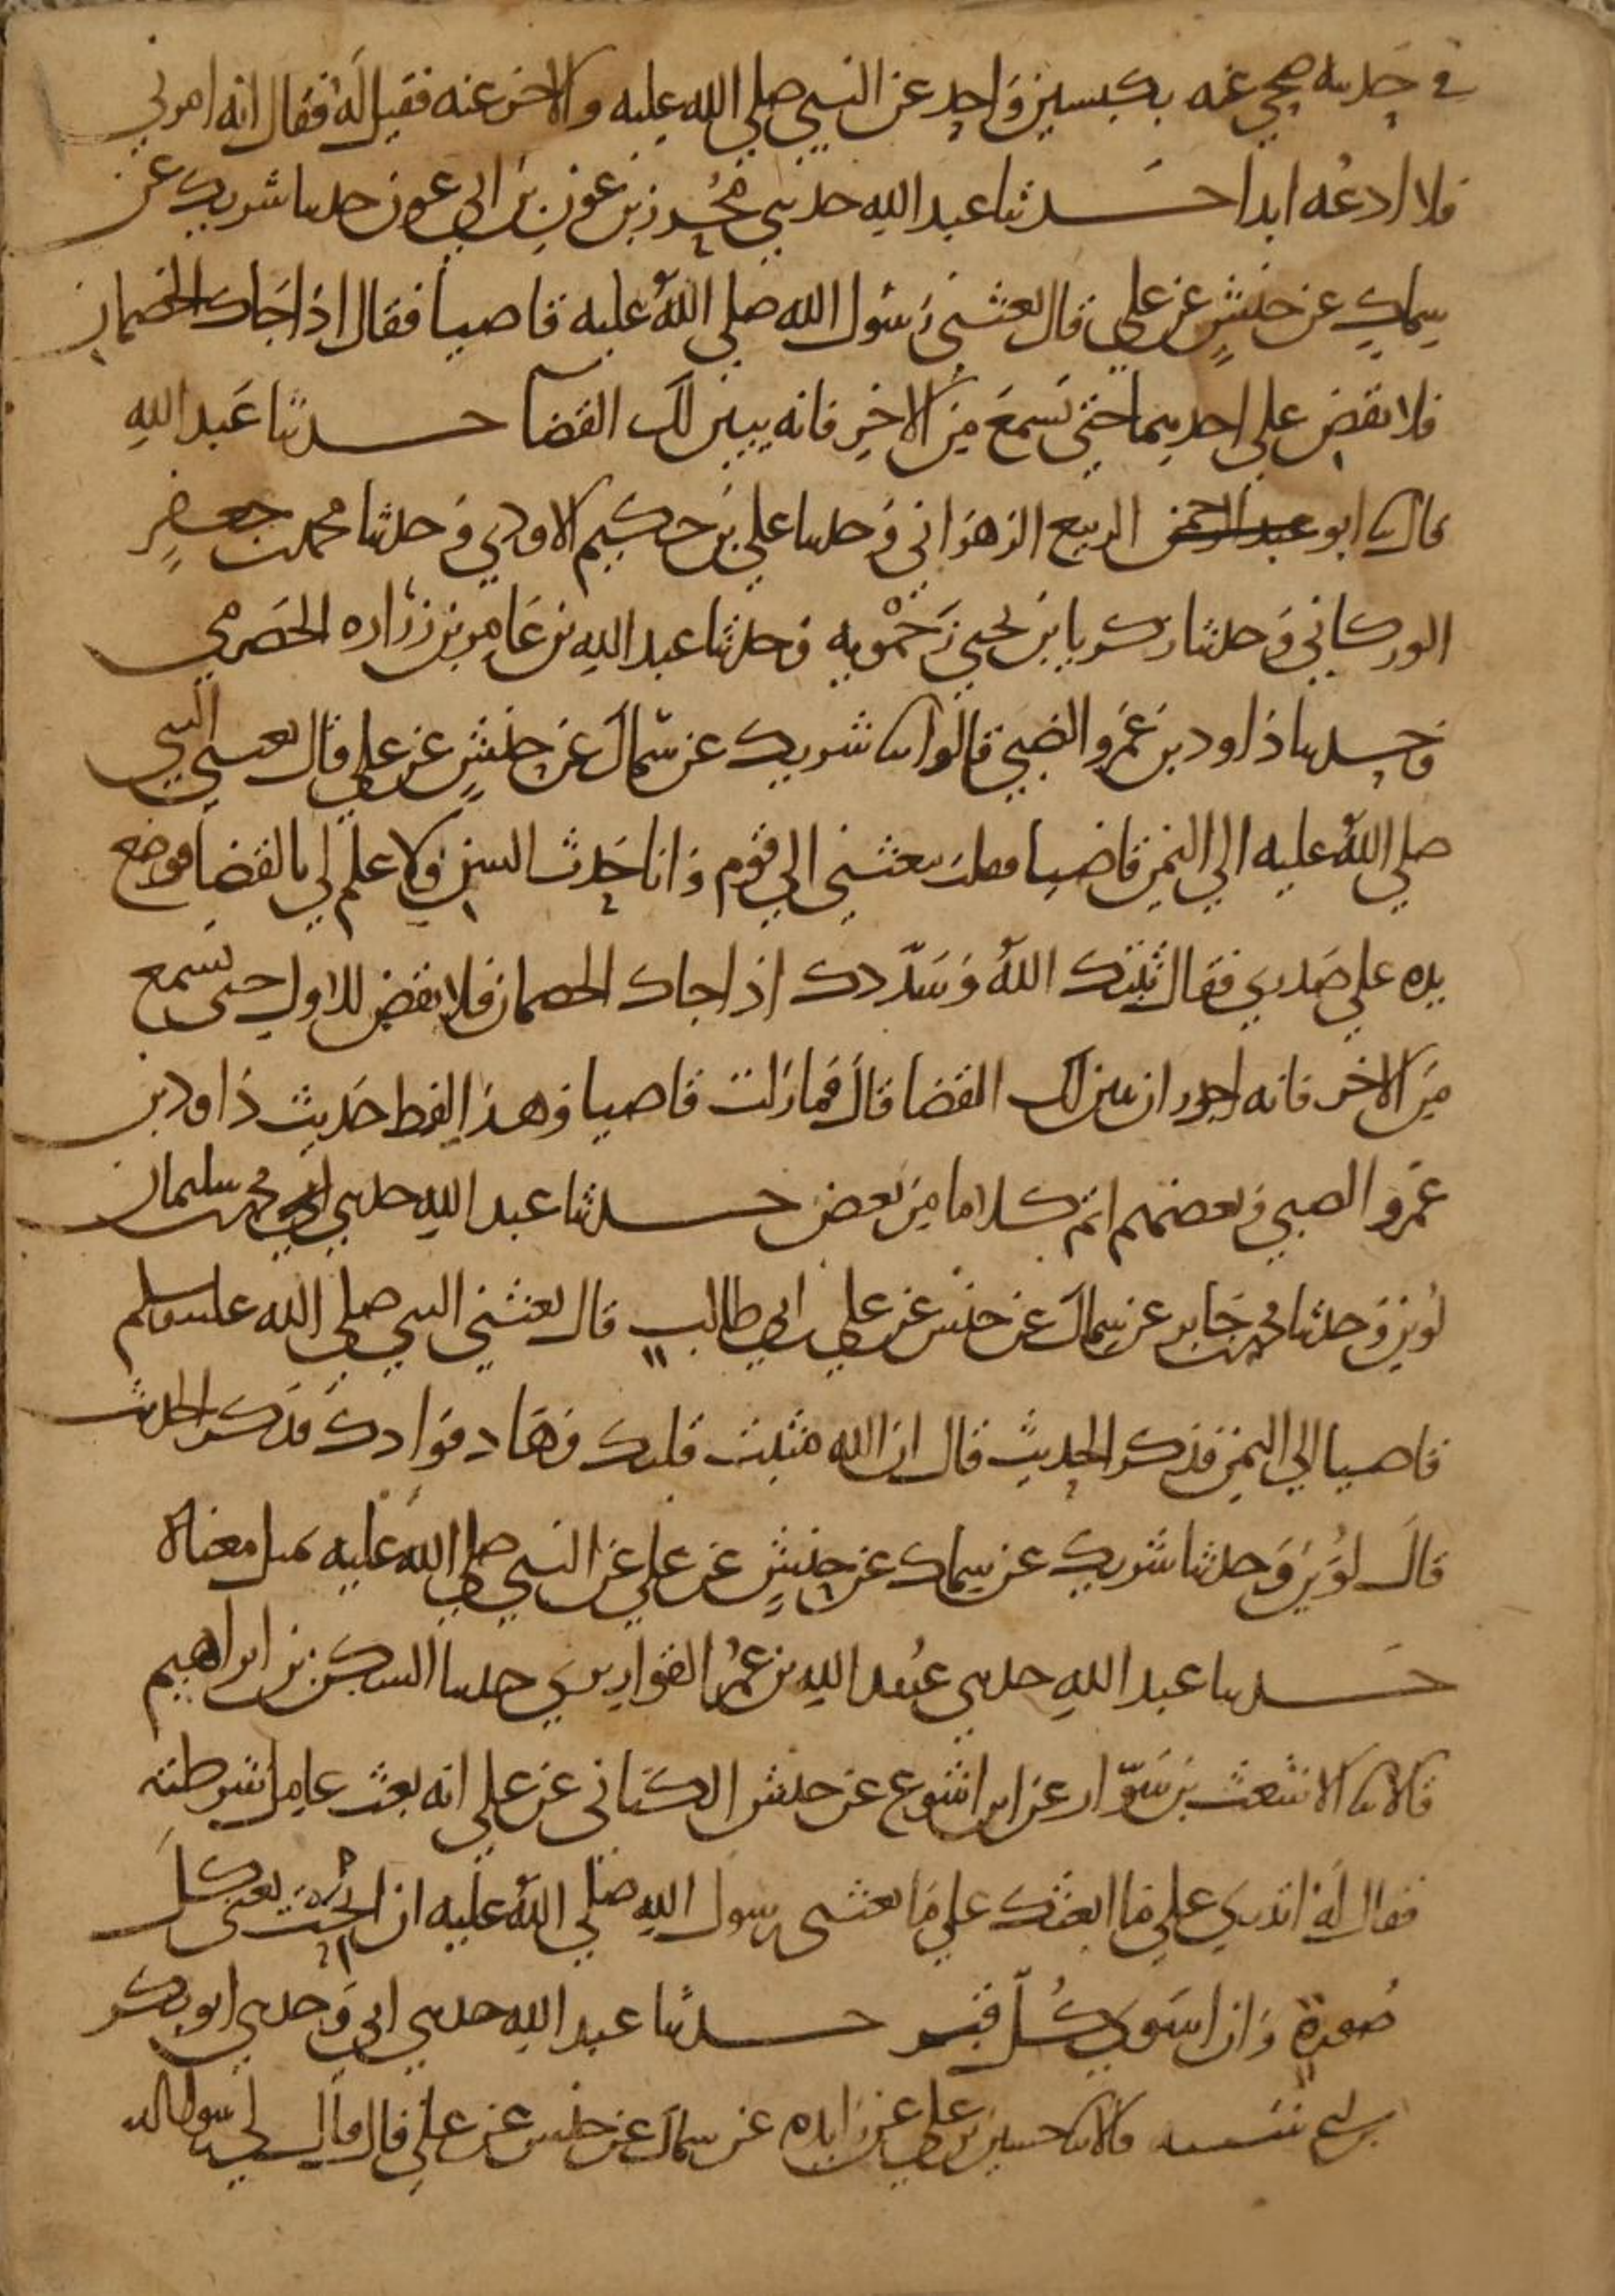 في حديثه ضحى عنه بكبشين واحد عن النبي صلى الله عليه والاخر عنه فقيل له فقال انه امرني
فلا ادعه ابدا حدثنا عبد الله حدثني محرز بن عون بن ابي عون حدثنا شريك عن
سماك عن حنش عن علي قال بعثني رسول الله صلى الله عليه قاضيا فقال اذا جاك الخصمان
فلا تقض على احدهما حتى تسمع من الاخر فانه يبين لك القضا حدثنا عبد الله
قال نا ابو عبد الرحمن الربيع الزهراني وحدثنا علي بن حكيم الاودي وحدثنا محمد بن جعفر
الوركاني وحدثنا زكريا بن يحيى زحمويه وحدثنا عبد الله بن عامر بن زراره الحضرمي
وحدثنا داود بن عمرو الضبي قالوا نا شريك عن سماك عن حنش عن علي قال بعثني النبي
صلى الله عليه الى اليمن قاضيا فقلت بعثني الى قوم وانا حدث السن ولا علم لي بالقضا فوضع
يده على صدري فقال ثبتك الله وسددك اذا جاك الخصمان فلا تقض للاول حتى تسمع
من الاخر فانه اجدر ان يبين لك القضا قال فما زلت قاضيا وهذا لفظ حديث داود بن
عمرو الضبي وبعضهم اتم كلاما من بعض حدثنا عبد الله حدثني محمد بن سليمان
لوين وحدثنا محمد بن جابر عن سماك عن حنش عن علي بن ابي طالب قال بعثني النبي صلى الله عليه وسلم
قاضيا الى اليمن فذكر الحديث قال ان الله مثبت قلبك وهاد فوادك فذكر الحديث
قال لوين وحدثنا شريك عن سماك عن حنش عن علي عن النبي صلى الله عليه مثل معناه
حدثنا عبد الله حدثني عبيد الله بن عمر القواريري حدثنا السكن بن ابراهيم
قال نا الاشعث بن سوار عن ابن اشوع عن حنش الكناني عن علي انه بعث عامل شرطته
فقال له اتدري على ما ابعثك على ما بعثني رسول الله صلى الله عليه ان انحت يعني كل
صورة وان اسوي كل قبر حدثنا عبد الله حدثني ابي وحدثني ابو بكر
بن ابي شيبه قال نا حسين بن علي عن زايده عن سماك عن حنش عن علي قال قال لي رسول الله